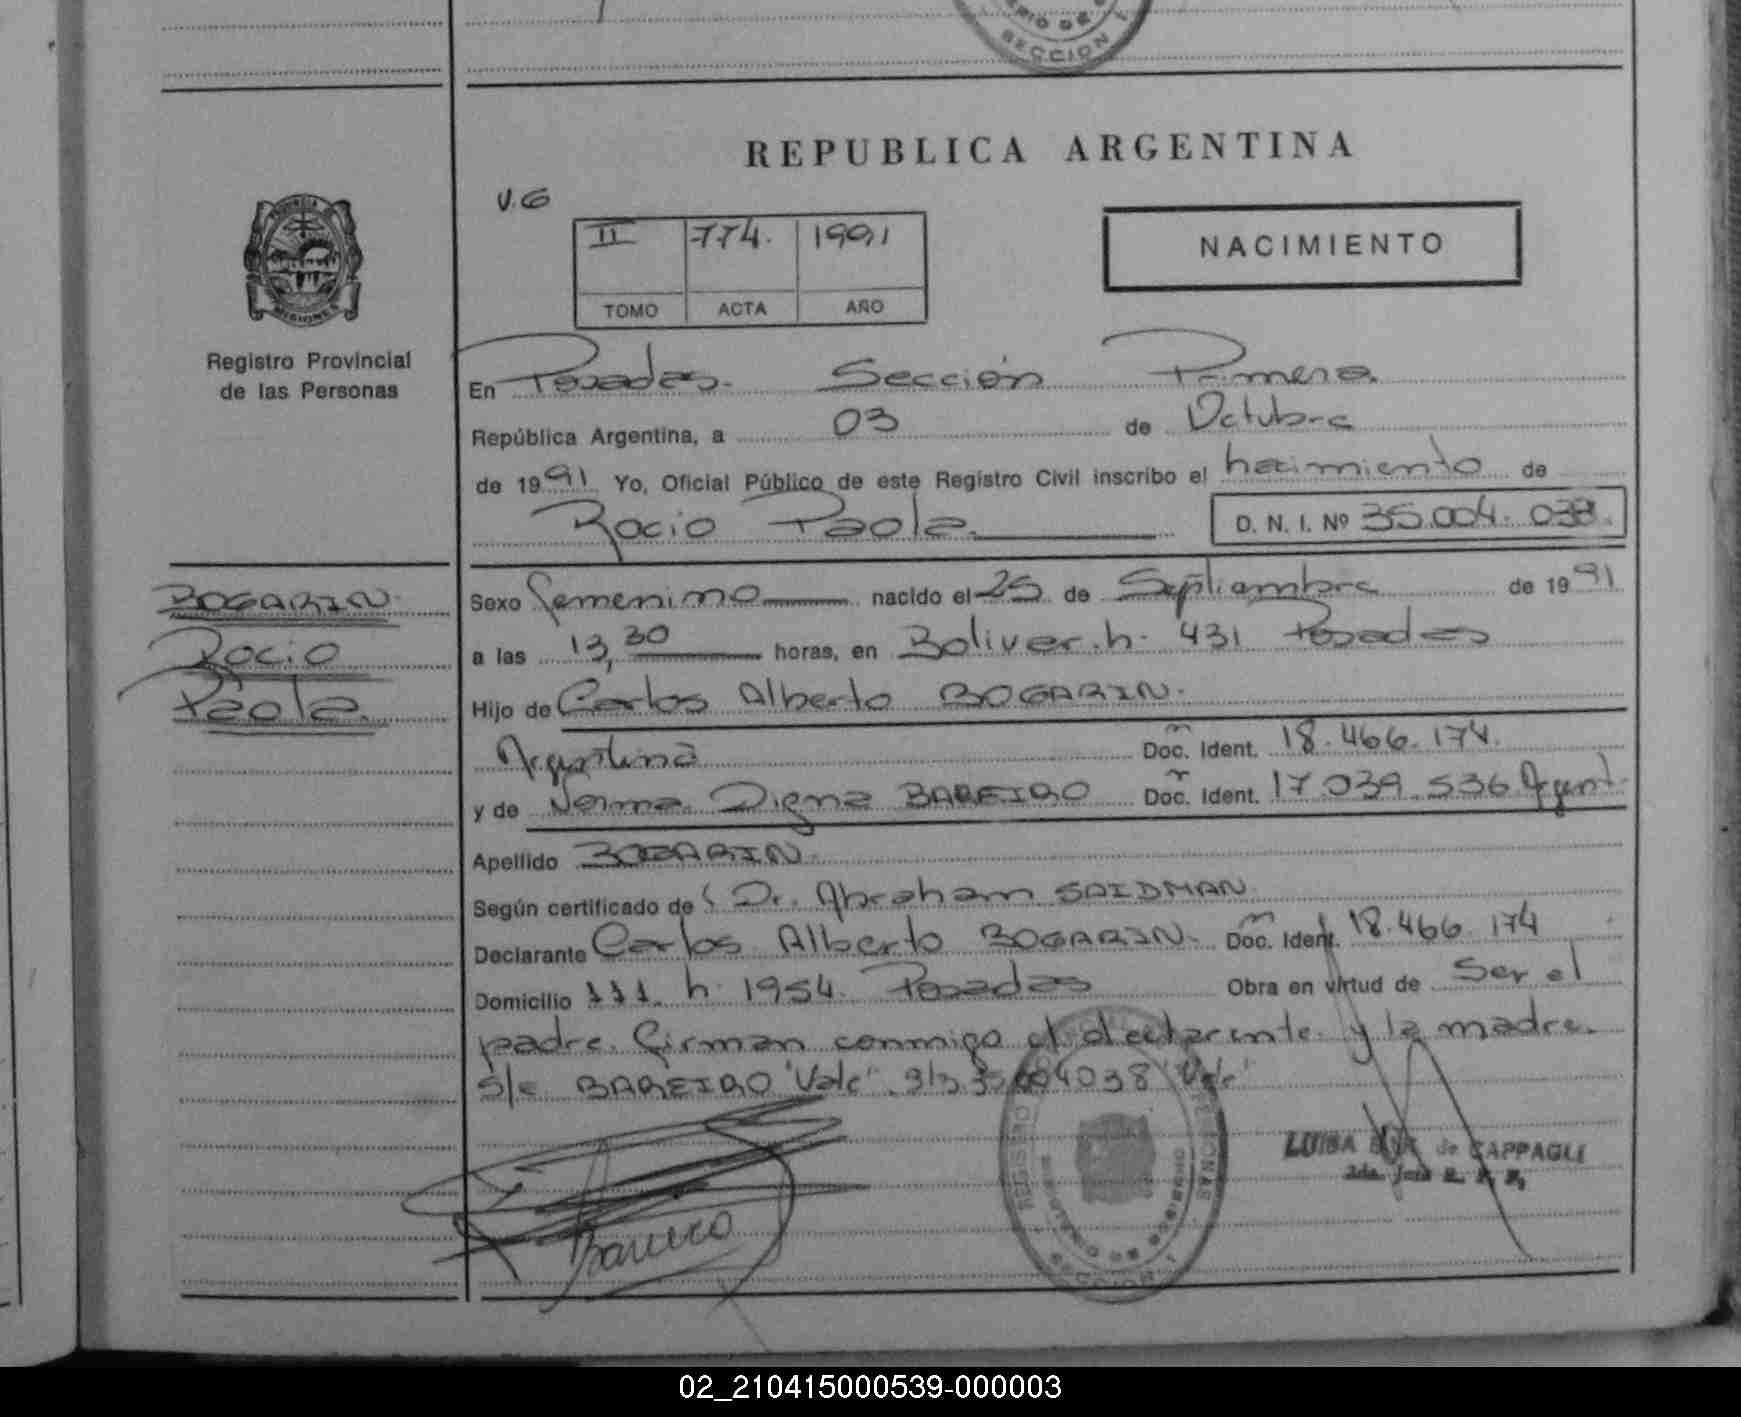 SECCION 1
REPUBLICA ARGENTINA
V.G
II 774. 1991
TOMO ACTA AÑO
NACIMIENTO
PROVINCIA DE
MISIONES
Registro Provincial
de las Personas
En Posadas. Sección Primera.
República Argentina, a 03 de Octubre
de 1991 Yo, Oficial Público de este Registro Civil inscribo el nacimiento de
Rocio Paola. D. N. I. Nº 35.004.038.
BOGARIN.
Rocio
Paola.
Sexo femenino nacido el 25 de Septiembre de 1991
a las 13,30 horas, en Bolivar. h. 431 Posadas
Hijo de Carlos Alberto BOGARIN.
Argentina Doc. Ident. 18.466.174.
y de Norma Digna BAREIRO Doc. Ident. 17.039.536 Argent.
Apellido BOGARIN.
Según certificado de Dr. Abraham SAIDMAN.
Declarante Carlos Alberto BOGARIN. Doc. Ident. 18.466.174
Domicilio 111. h. 1954. Posadas Obra en virtud de Ser el
padre. firman conmigo el declarante. y la madre.
S/e BAREIRO "Vale". S/e 35004038 "Vale"
Bareiro
LUISA de CAPPAGLI
SECCION 1
02_210415000539-000003